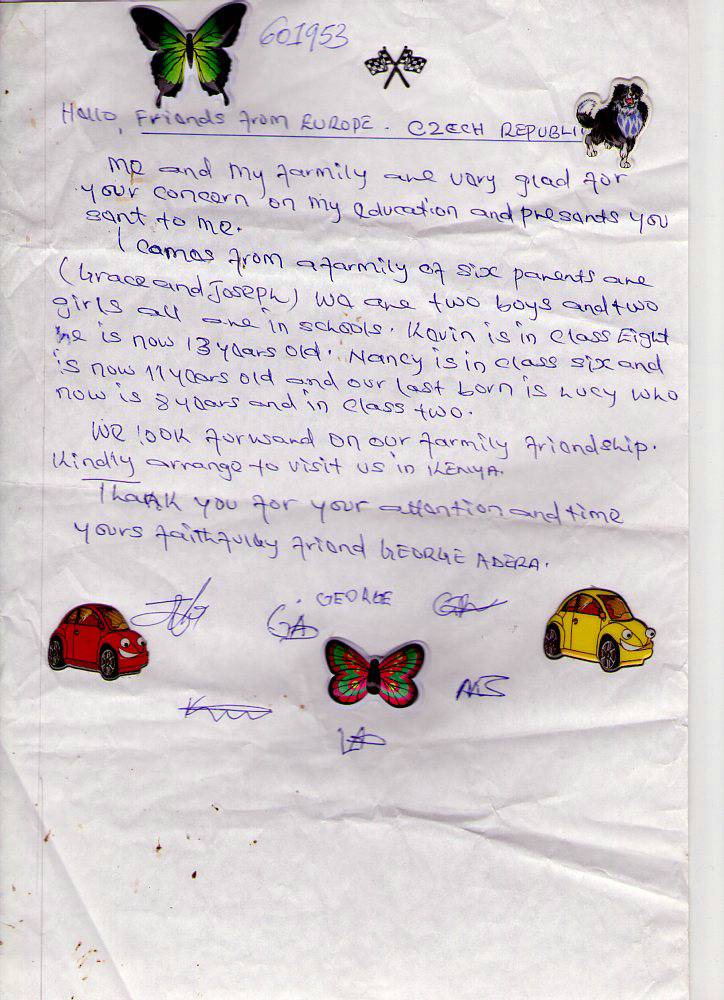 601953
Hallo, Friends from EUROPE. CZECH REPUBLIC
me and my farmily are very glad for
your concern on my education and presants you
sant to me.
I comes from a farmily of six parents are
(Grace and Joseph) we are two boys and two
girls all are in schools. Kevin is in class Eight
he is now 13 years old. Nancy is in class six and
is now 11 years old and our last born is Lucy who
now is 8 years and in class two.
We look forward on our farmily friendship.
Kindly arrange to visit us in KENYA.
Thank you for your attention and time
yours faithfully friend GEORGE ADERA.
GEORGE
GA
LA